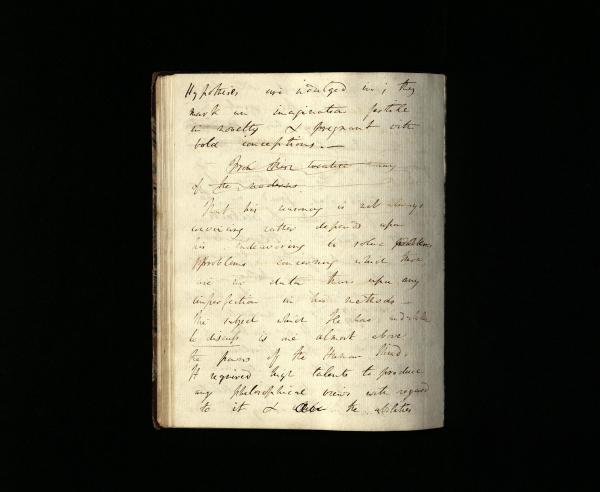 Hypotheses are indulged in; they
mark an imagination fertile
in novelty & pregnant with
bold conceptions. —
of the
That his reasoning is not always
convincing rather depends upon
his endeavouring to solve problems
problems concerning which there
are no data than upon any
imperfection in his methods —
The subject which He has undertaken
to discuss is one almost above
the powers of the Human Mind.
It required high talents to produce
any philosophical views with regard
to it & the abilities